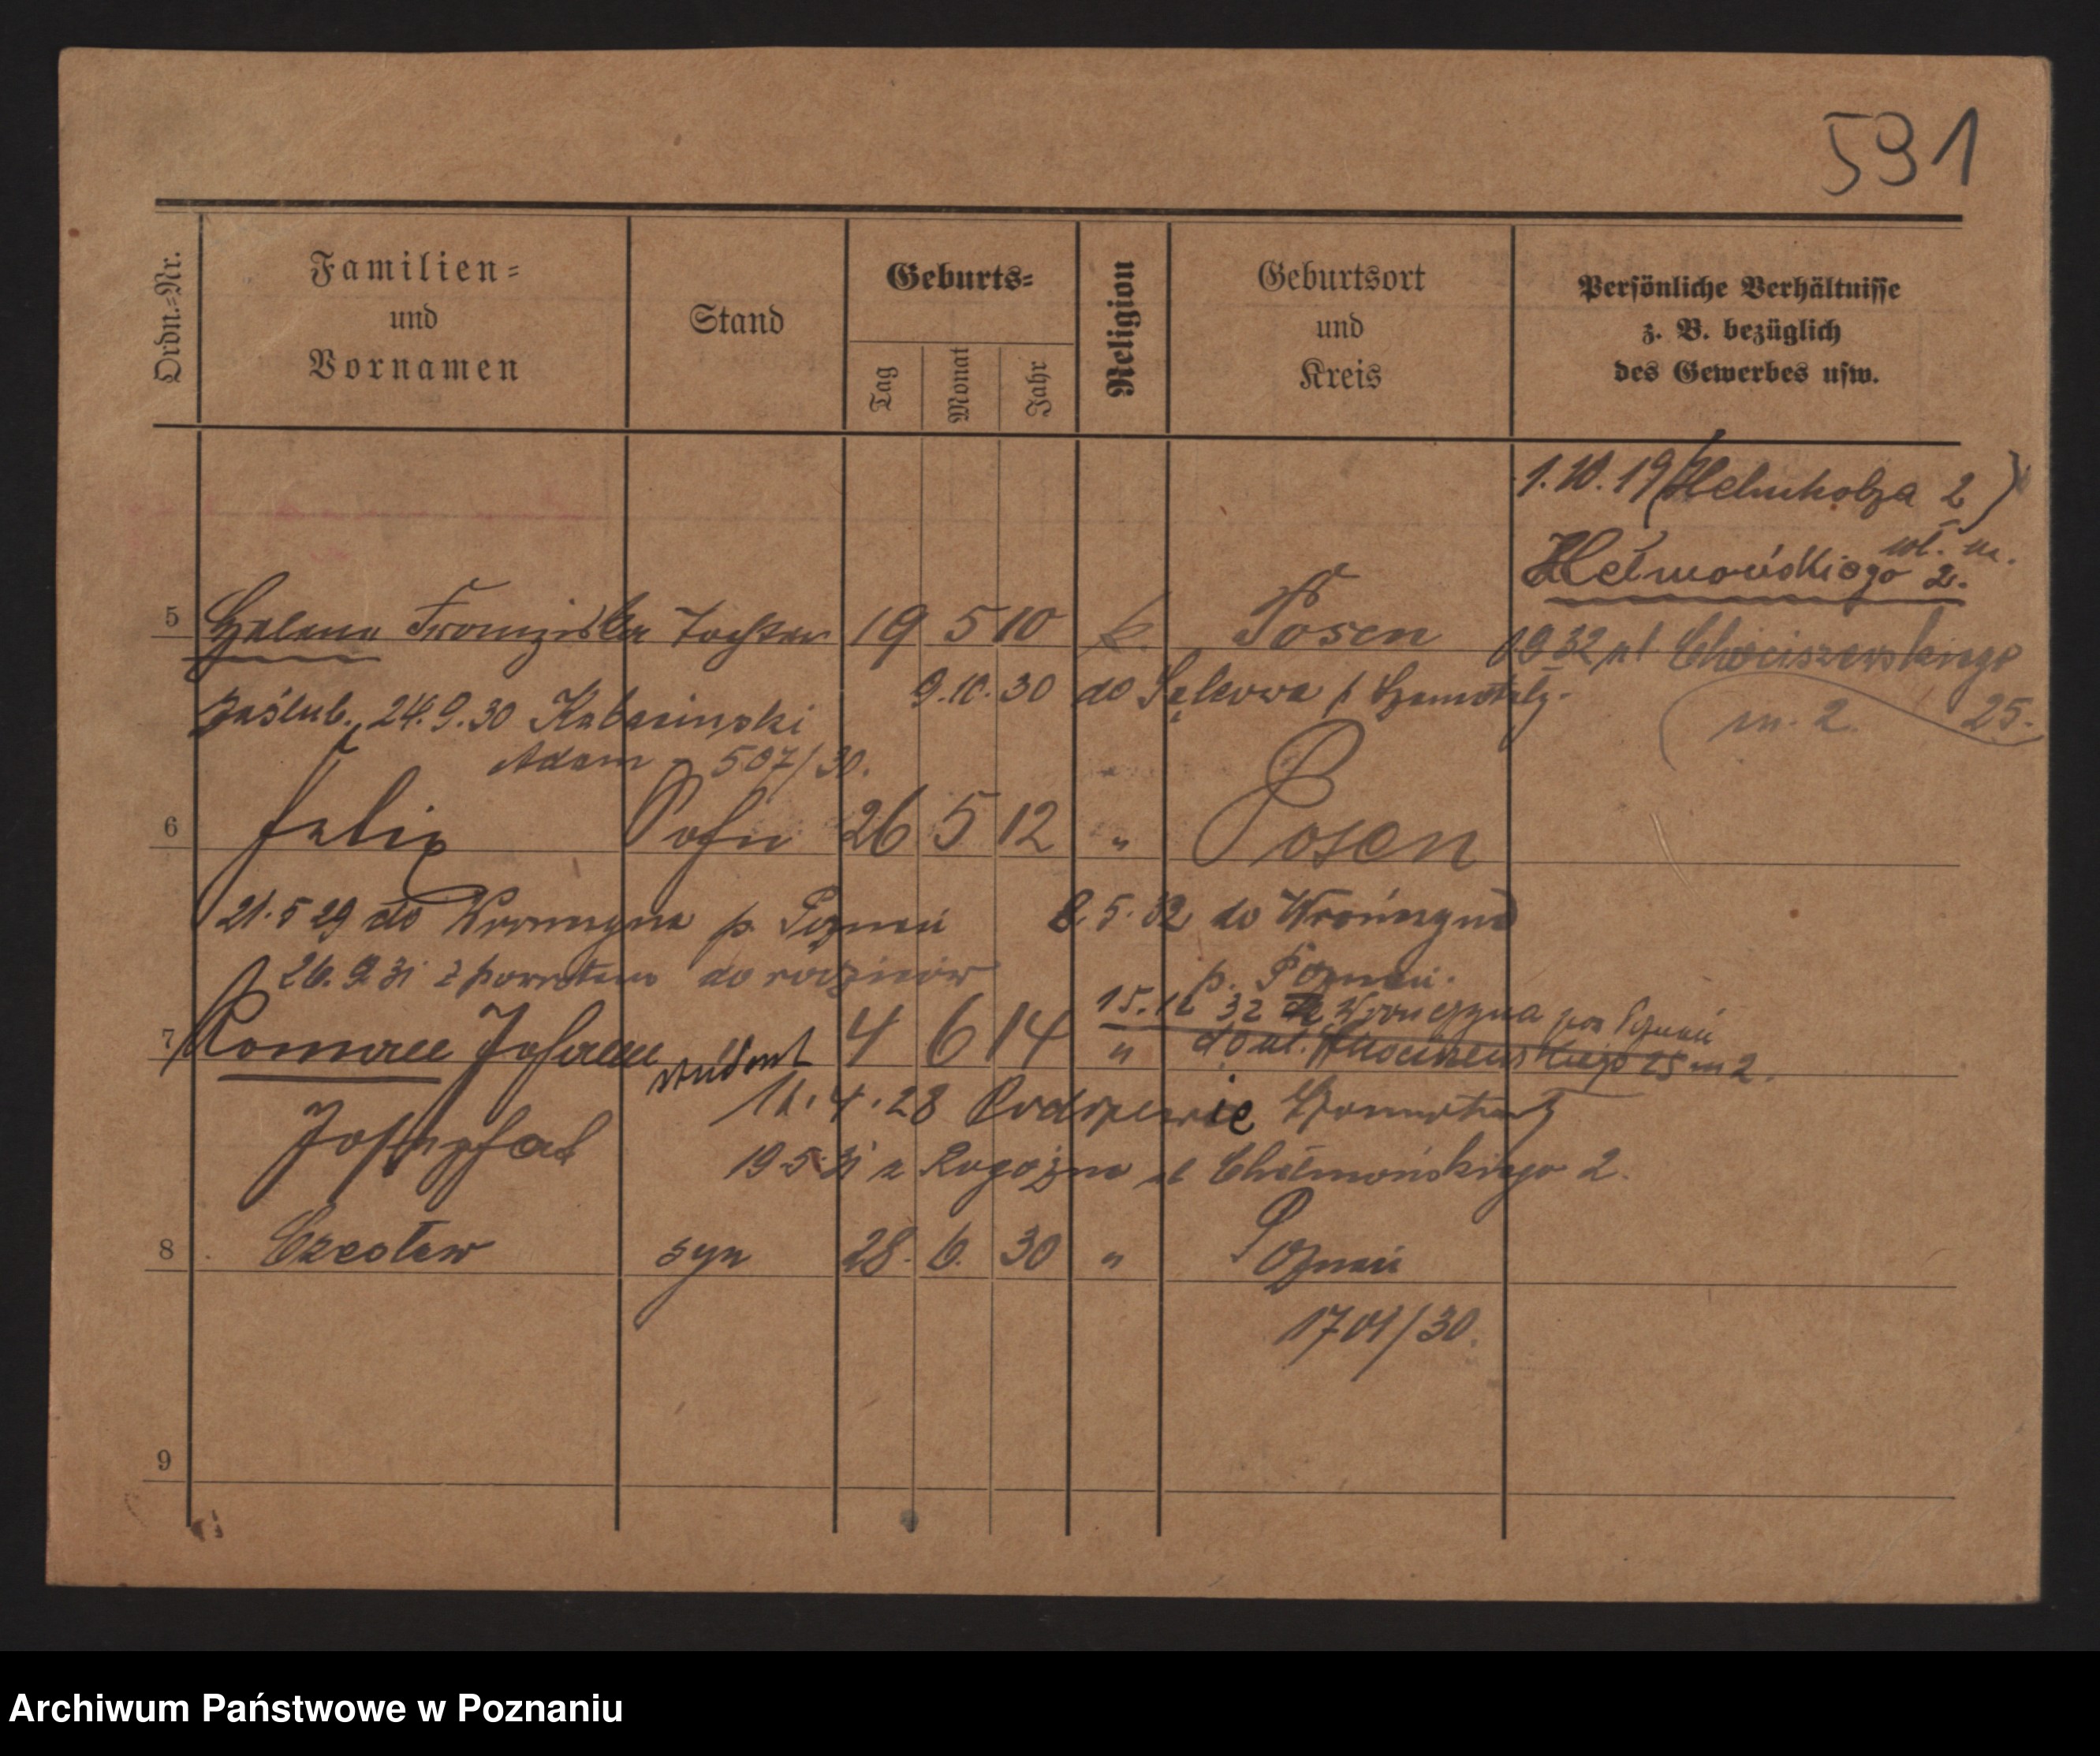 591
Ordn.=Nr.
Familien=
und
Vornamen
Stand
Geburts=
Tag
Monat
Jahr
Religion
Geburtsort
und
Kreis
Persönliche Verhältnisse
z. B. bezüglich
des Gewerbes usw.
1.10.19 (Helmholza 2)
wł. m.
Hełmońskiego 2.
5 Helena Franziska Tochter 19 5 10 k. Posen
1932 ul Chociszewskiego
25.
m. 2.
Zaślub. 24.9.30 Kabacinski
9.10.30 do p Szamotuły.
Adam - 507/30.
6 Felix Sohn 26 5 12 " Posen
21.5 29 do Wronczyna p. Poznań
8.5.32 do Wrończyna
p. Poznań.
26.9.31 z powrotem do rodziców
15.12 32 Wronczyna poz Poznań
7 Roman Johann student 4 6 14 " do ul. Chociszewskiego 25 m 2.
11.4.28 Szamotuły
Josaphat
19 5 31 z Rogoźna ul Chełmońskiego 2.
8 Czesław syn 28. 6. 30 " Poznań
1701/30.
9
Archiwum Państwowe w Poznaniu